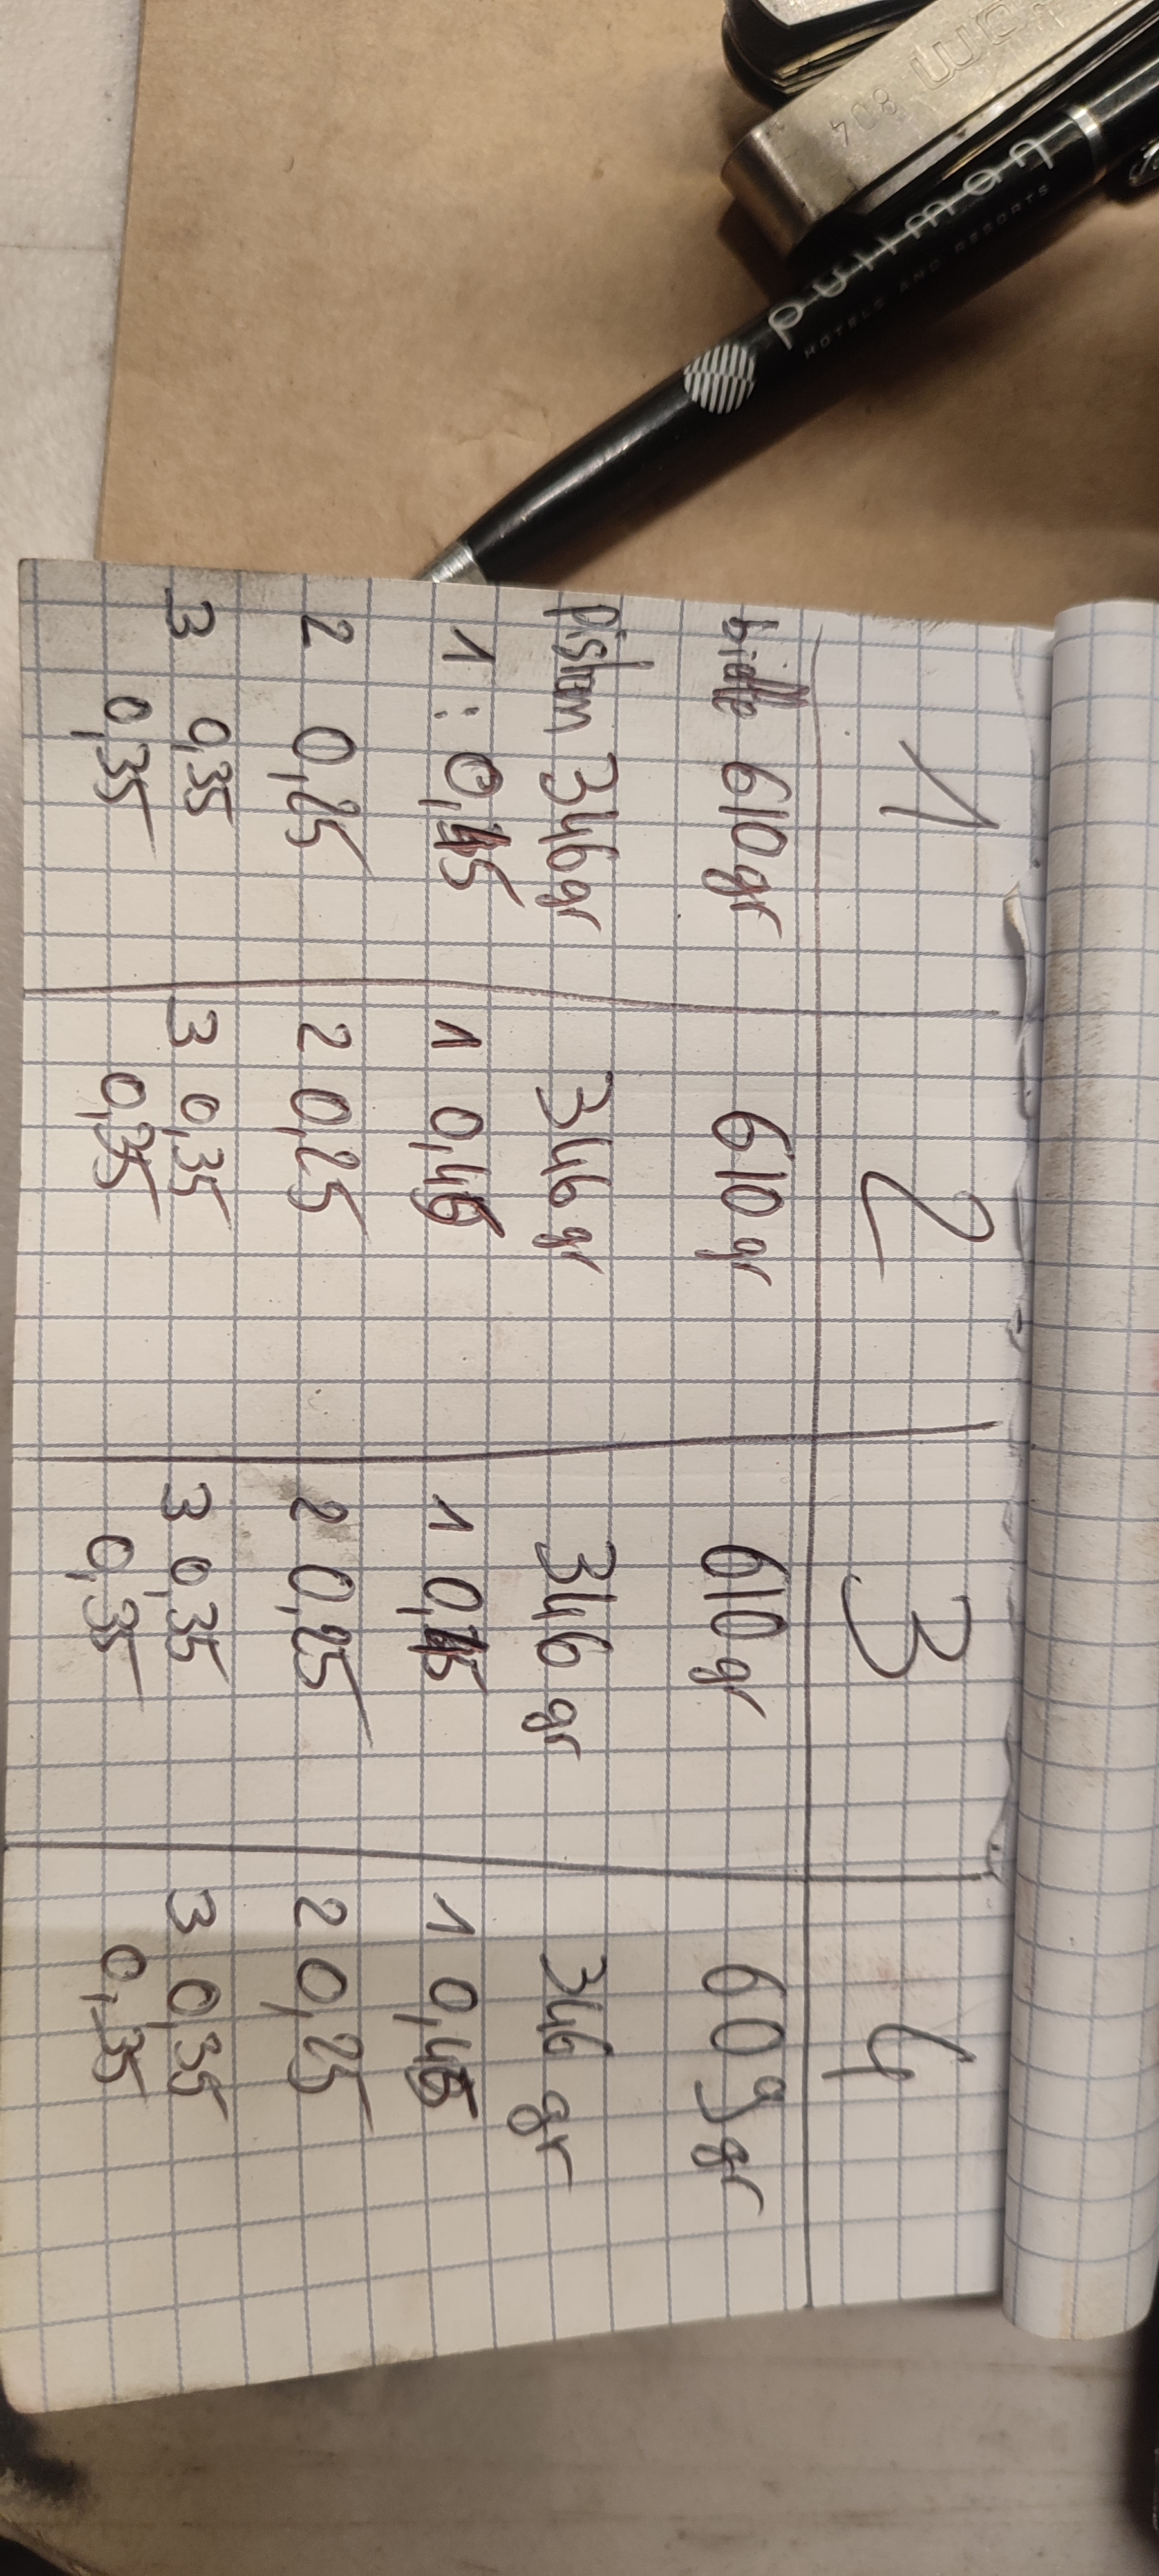 1 2 3 4
bielle 610gr 610 gr 610gr 609gr
piston 346gr 346 gr 346 gr 346 gr
1 : 0,45 1 0,45 1 0,45 1 0,45
2 0,25 2 0,25 2 0,25 2 0,25
3 0,35 3 0,35 3 0,35 3 0,35
0,35 0,35 0,35 0,35
pullman
HOTELS AND RESORTS
804